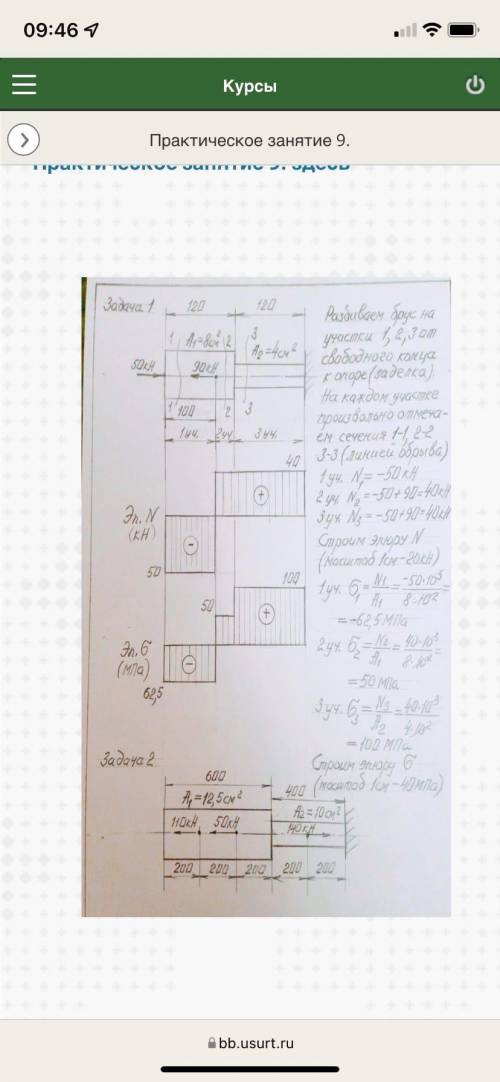 09:46
Курсы
Практическое занятие 9.
Практическое занятие 9. здесь
Задача 1
120
120
1
A₁=8см²
2
3
A₂=4см²
50кН
90кН
1
100
2
3
1уч.
2уч
3уч.
40
Эп. N
(кН)
+
−
50
100
50
+
Эп. б
(МПа)
−
62,5
Разбиваем брус на
участки 1, 2, 3 от
свободного конца
к опоре (заделка).
На каждом участке
произвольно отмеча-
ем сечения 1-1, 2-2
3-3 (линией обрыва)
1уч. N₁=-50кН
2уч. N₂=-50+90=40кН
3уч. N₃=-50+90=40кН
Строим эпюру N
(масштаб 1см-20кН)
1уч. б₁=N₁/A₁=-50·10³/8·10²=
=-62,5МПа
2уч. б₂=N₂/A₁=40·10³/8·10²=
=50МПа
3уч. б₃=N₃/A₂=40·10³/4·10²
=100МПа
Строим эпюру б
(масштаб 1см-40МПа)
Задача 2
600
400
A₁=12,5см²
A₂=10см²
110кН
50кН
140кН
200
200
200
200
200
bb.usurt.ru